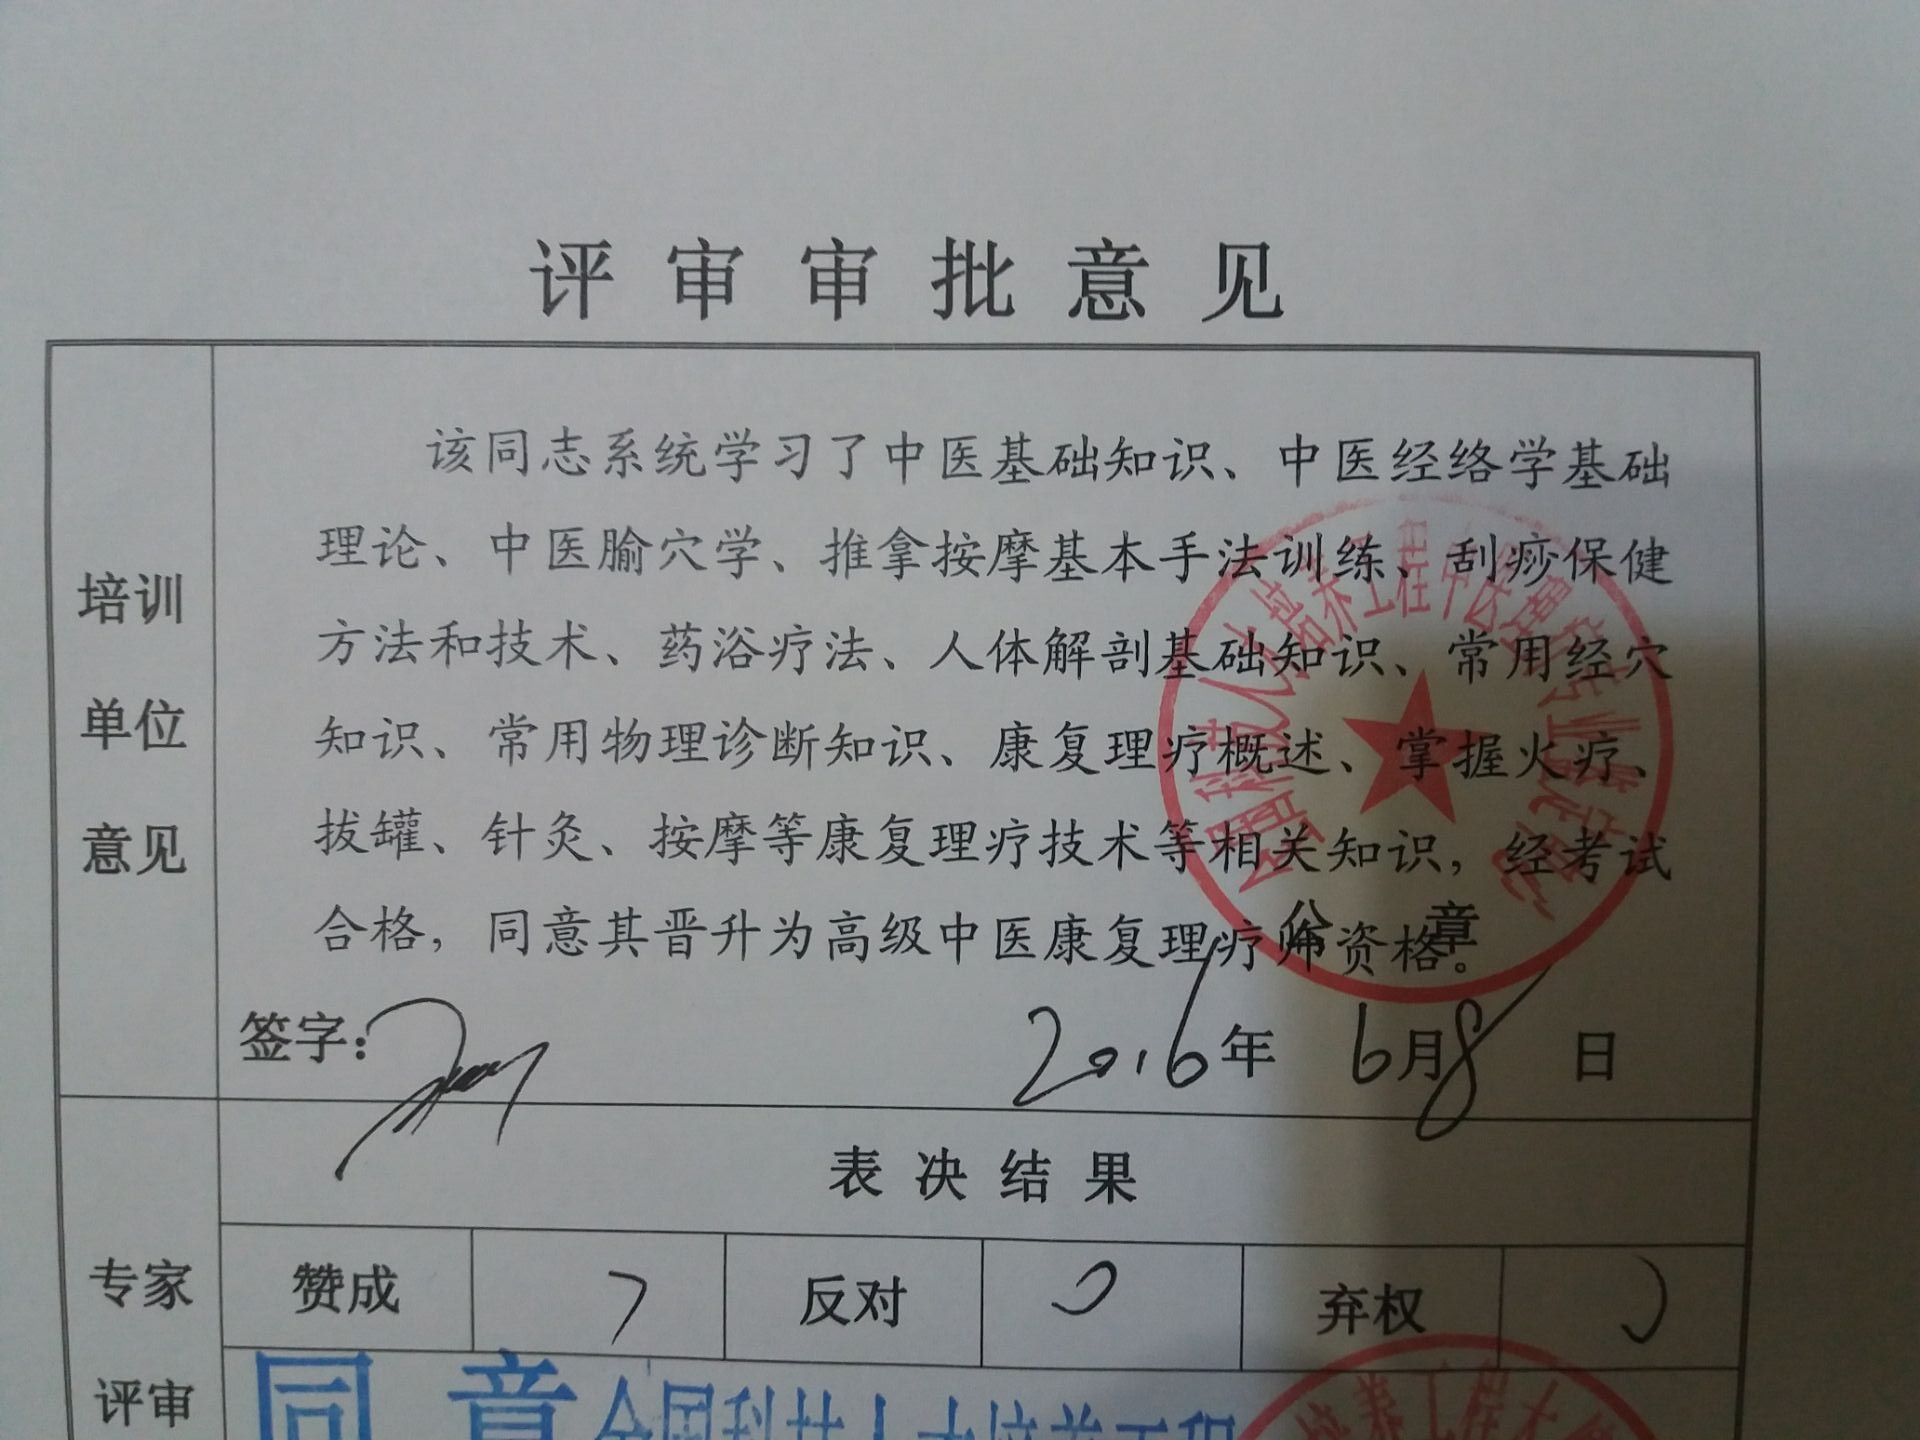 评审审批意见
培训
单位
意见
该同志系统学习了中医基础知识、中医经络学基础
理论、中医腧穴学、推拿按摩基本手法训练、刮痧保健
方法和技术、药浴疗法、人体解剖基础知识、常用经穴
知识、常用物理诊断知识、康复理疗概述、掌握火疗、
拔罐、针灸、按摩等康复理疗技术等相关知识，经考试
合格，同意其晋升为高级中医康复理疗师资格。
公 章
签字：
2016年 6月8 日
专家
评审
表决结果
赞成 7 反对 0 弃权 0
同意
全国科技人才培养工程